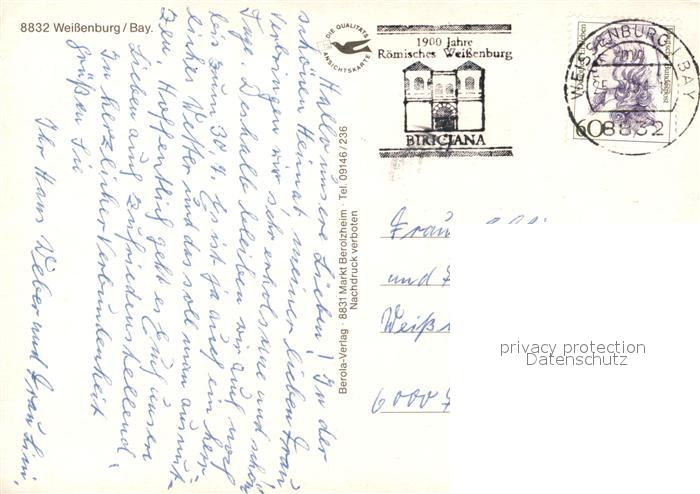 8832 Weißenburg / Bay.
DIE QUALITÄTS
ANSICHTSKARTE
1900 Jahre
Römisches Weißenburg
BIRICIANA
WEISSENBURG I BAY
8832
60
Hallo unsere Lieben! In der
schönen Heimat meiner lieben Frau
verbringen wir sehr erholsame und schöne
Tage. Deshalb bleiben wir auch noch
bis zum 30.7. Es ist ja auch ein herr-
liches Wetter und das soll man ausnut-
zen. Hoffentlich geht es Euch unsere
Lieben auch zufriedenstellend.
In herzlicher Verbundenheit
grüßen Sie
Ihr Hans Weber und Frau
Berola-Verlag · 8831 Markt Berolzheim · Tel. 09146/236
Nachdruck verboten
Frau
und
Weiß
6000
privacy protection
Datenschutz